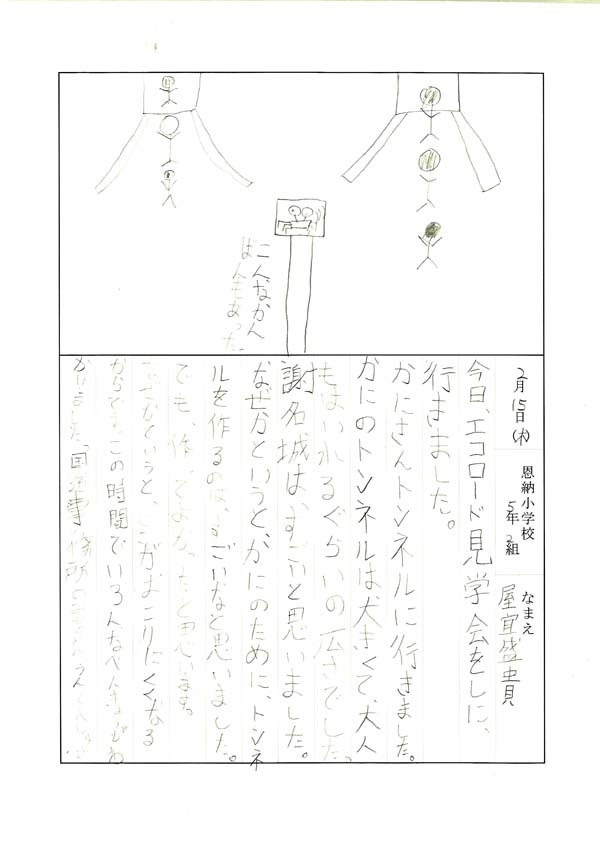 こんなかん
ばんもあった。
2月15日(木)
恩納小学校
5年 2組
なまえ
屋宜盛貴
今日、エコロード見学会をしに、
行きました。
かにさんトンネルに行きました。
かにのトンネルは大きくて、大人
もはいれるぐらいの広さでした。
謝名城は、すごいと思いました。
なぜかというとかにのために、トンネ
ルを作るのは、すごいなと思いました。
でも、作ってよかったと思います。
なぜかというと、じこがおこりにくくなる
からです。この時間でいろんなべんきょうがわ
かりました。国道事務所のみなさん